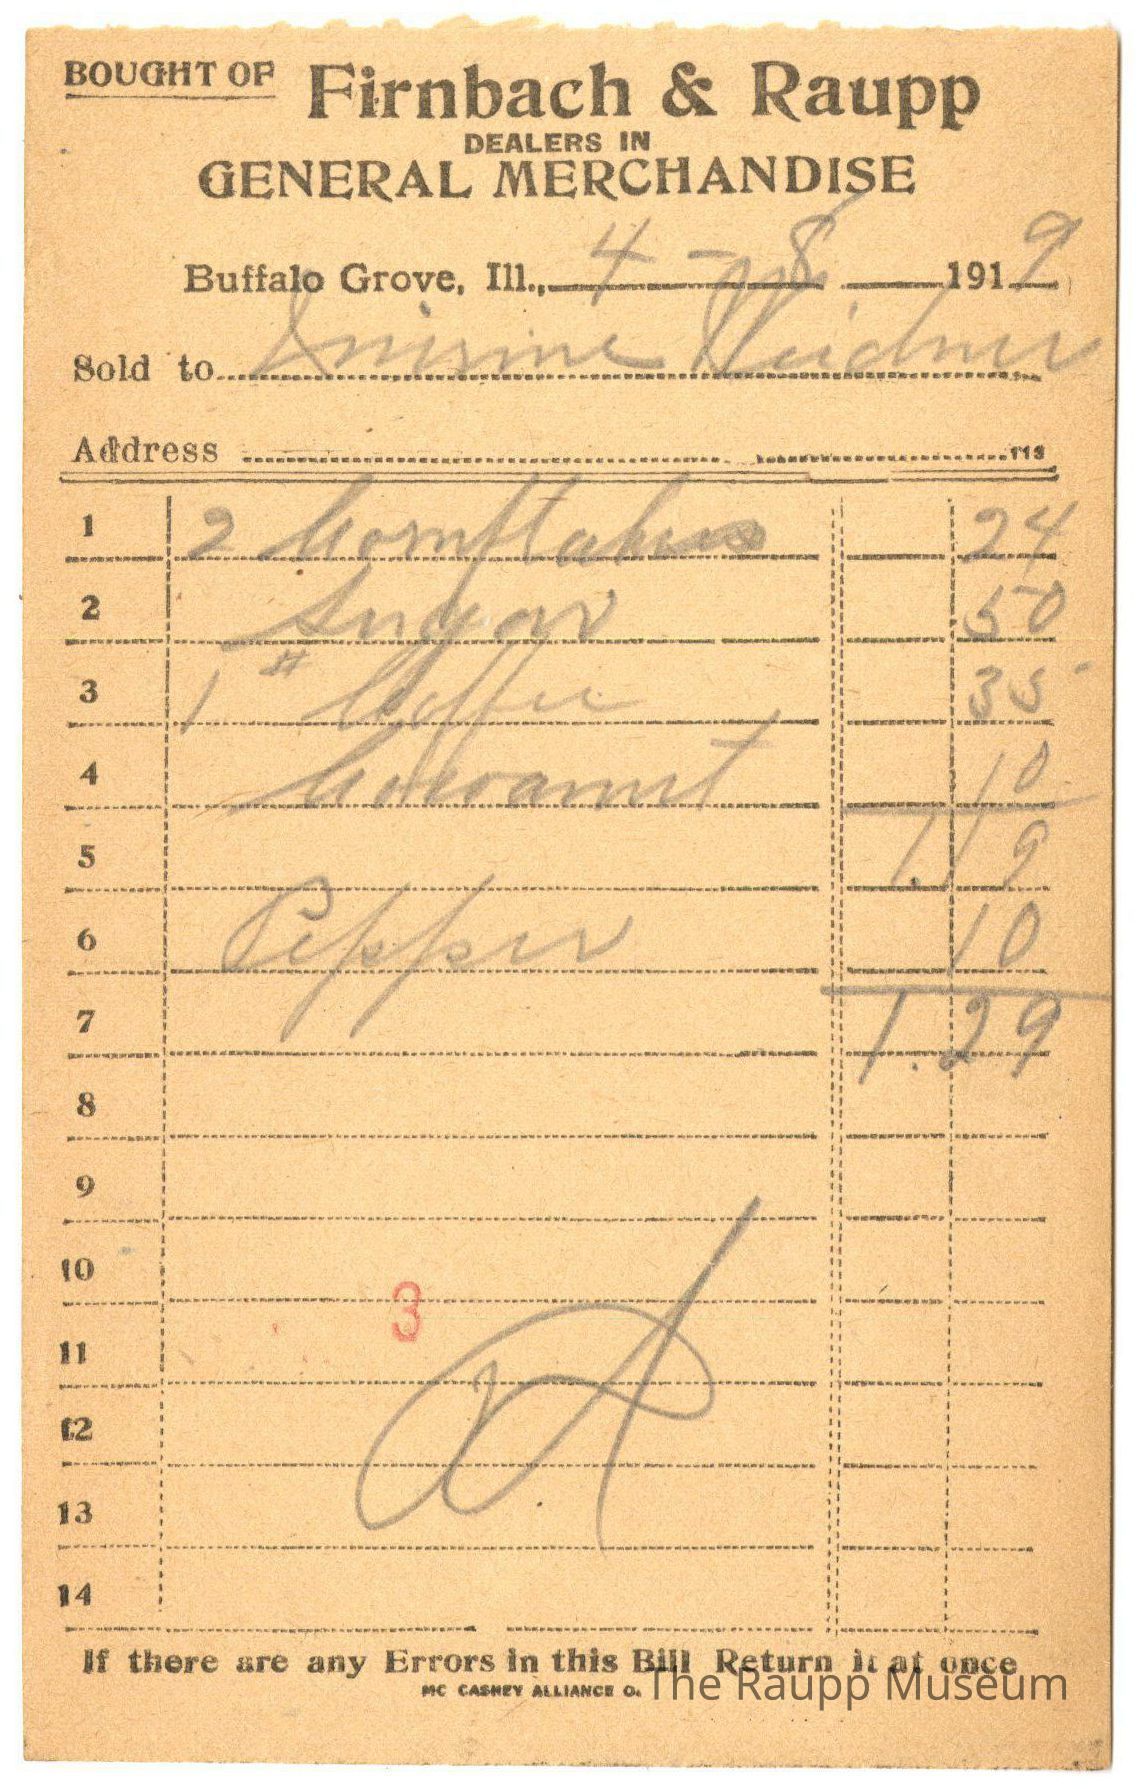 BOUGHT OF Firnbach & Raupp
DEALERS IN
GENERAL MERCHANDISE
Buffalo Grove, Ill., 4 - 8 1919
Sold to Weidner
Address
1 2 Cornflakes 24
2 Sugar 50
3 1 # Coffee 35
4 Cocoanut 10
5 1.19
6 Pepper 10
7 1.29
8
9
10
3
11
12
13
14
If there are any Errors in this Bill Return it at once
MC CASKEY ALLIANCE O.
The Raupp Museum